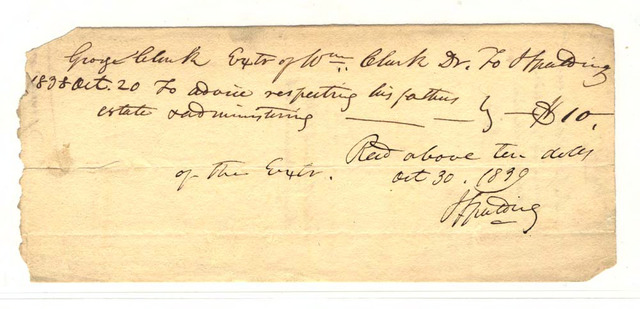 George Clark Extr of Wm Clark Dr. To J Spalding
1838 Oct. 20 To advice respecting his fathers
estate & administering — — — } — $10.
Recd above ten dolls
of the Extr. Oct 30. 1839
J Spalding